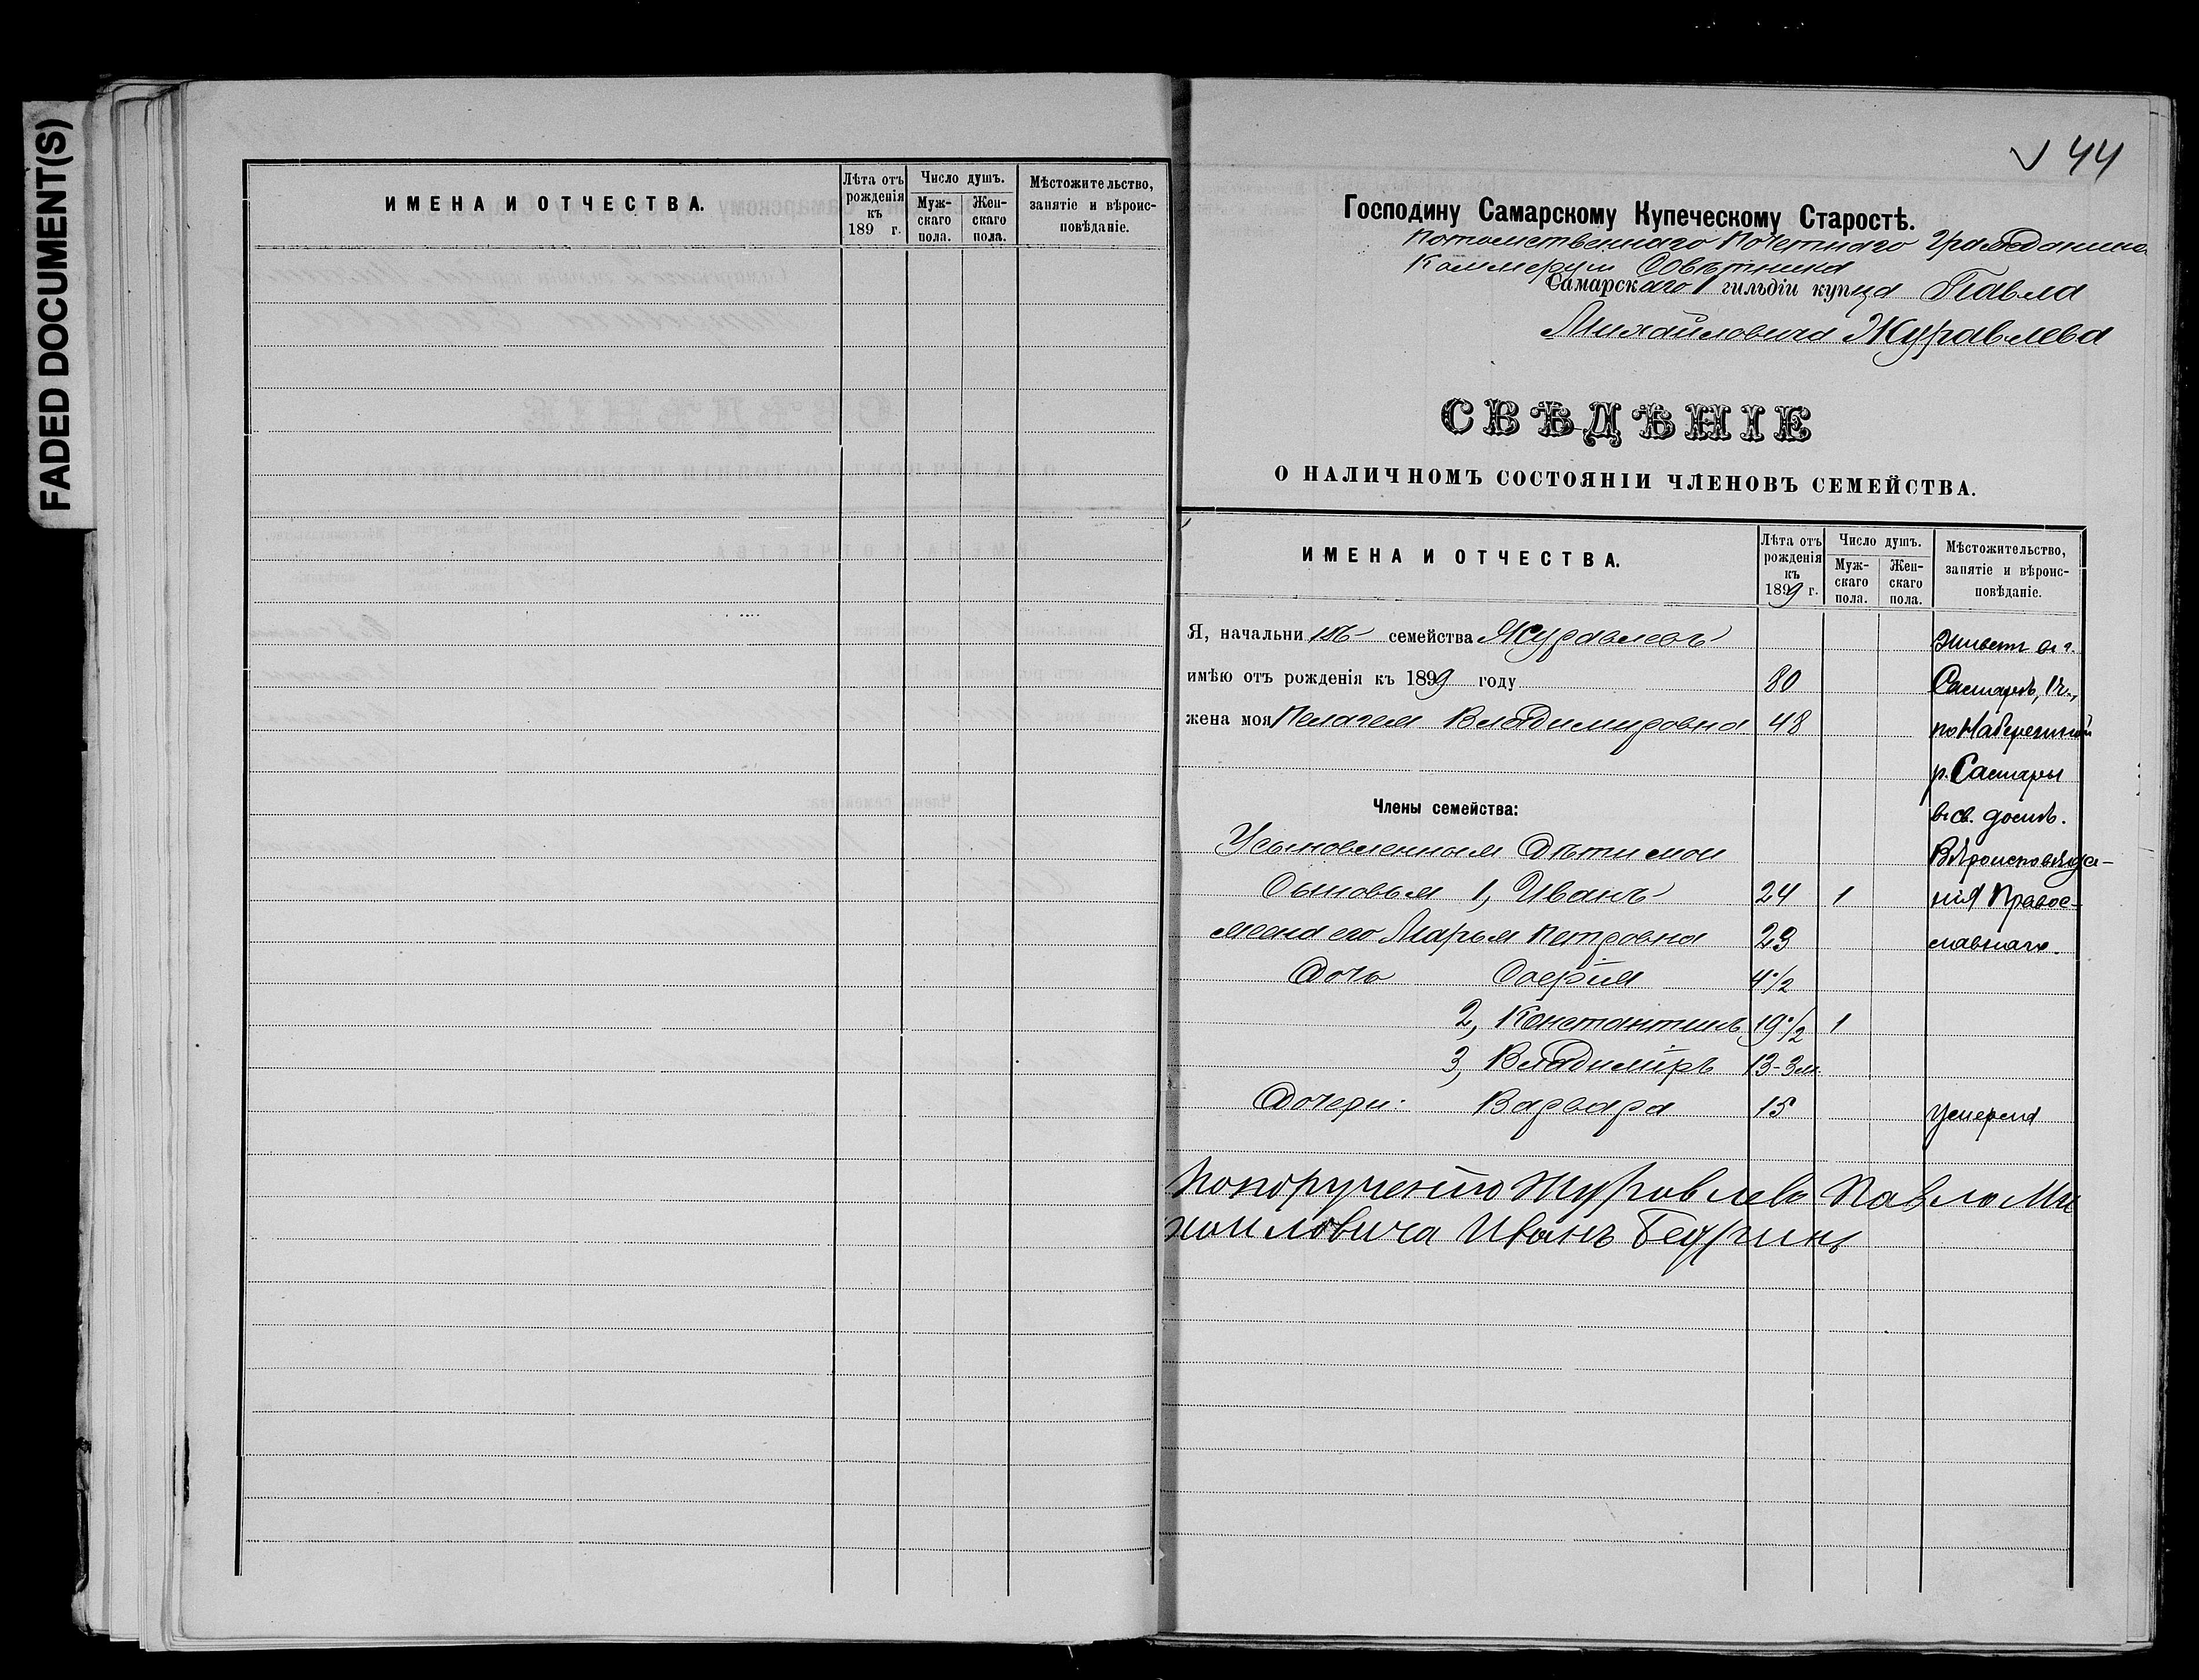 FADED DOCUMENT(S)
ИМЕНА И ОТЧЕСТВА.
Лѣта отъ рожденія къ 189 г.
Число душъ.
Муж-скаго пола.
Жен-скаго пола.
Мѣстожительство, занятіе и вѣроис-повѣданіе.
44
Господину Самарскому Купеческому Старостѣ.
Потомственнаго Почетнаго Гражданина
Коммерціи Совѣтника
Самарскаго 1 гильдіи купца Павла
Михайловича Журавлева
СВѢДѢНІЕ
О НАЛИЧНОМЪ СОСТОЯНІИ ЧЛЕНОВЪ СЕМЕЙСТВА.
ИМЕНА И ОТЧЕСТВА.
Лѣта отъ рожденія къ 1899 г.
Число душъ.
Муж-скаго пола.
Жен-скаго пола.
Мѣстожительство, занятіе и вѣроис-повѣданіе.
Я, начальни къ семейства Журавлевъ Живетъ въ г.
имѣю отъ рожденія къ 1899 году 80 Самарѣ, 1 ч.,
жена моя Пелагея Владимировна 48 по Набережной
р. Самары
Члены семейства: въ св. домѣ.
Усыновленныя дѣти мои Вѣроисповѣда-
Сыновья 1, Иванъ 24 1 нія Правос-
жена его Марья Петровна 23 лавнаго.
Дочь Софія 4 1/2
2, Константинъ 19 1/2 1
3, Владиміръ 13-3 м.
Дочери: Варвара 15 Умерла
По порученію Журавлева Павла Ми
хаиловича Иванъ